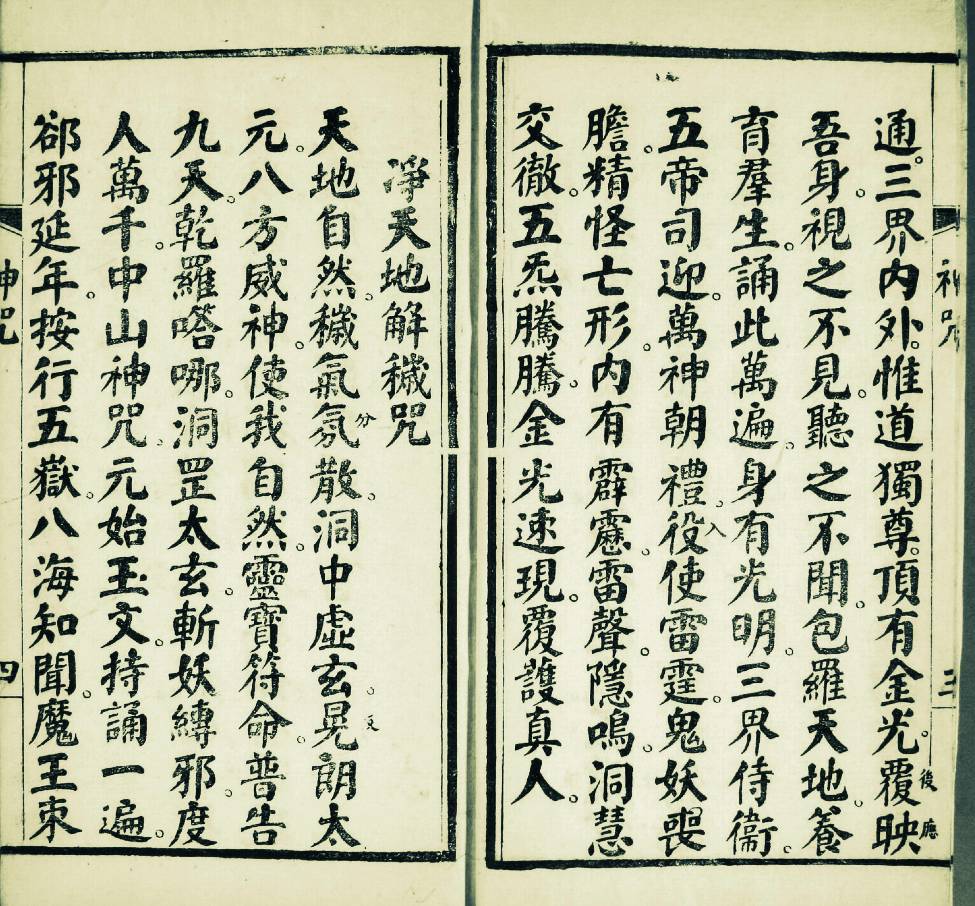 通三界内外惟道獨尊頂有金光覆映
後應
吾身視之不見聽之不聞包羅天地養
育羣生誦此萬遍身有光明三界侍衞
五帝司迎萬神朝禮役使雷霆鬼妖喪
入
膽精怪亡形内有霹靂雷聲隱鳴洞慧
交徹五炁騰騰金光速現覆護真人
神咒
三
淨天地解穢咒
天地自然穢氣氛散洞中虛玄晃朗太
分
元八方威神使我自然靈寶符命普告
九天乾羅嗒哪洞罡太玄斬妖縛邪度
人萬千中山神咒元始玉文持誦一遍
郤邪延年按行五嶽八海知聞魔王束
神咒
四